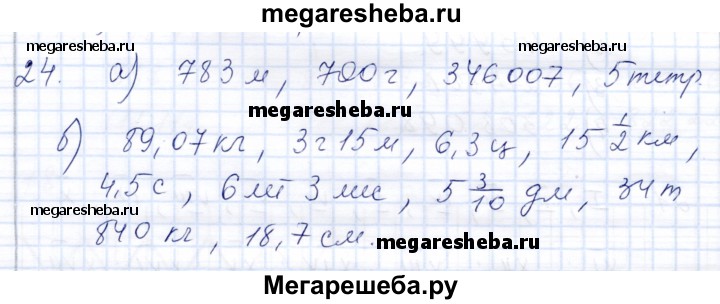 megaresheba.ru
megaresheba.ru megaresheba.ru
24. а) 783 м, 700 г, 346 007, 5 тетр.
megaresheba.ru
б) 89,07 кг, 3 г 15 м, 6,3 ц, 15 1/2 км,
4,5 с, 6 м 3 мис, 5 3/10 дм, 34 т
megaresheba.ru
840 кг, 18,7 см.
megaresheba.ru
Мегарешеба.ру